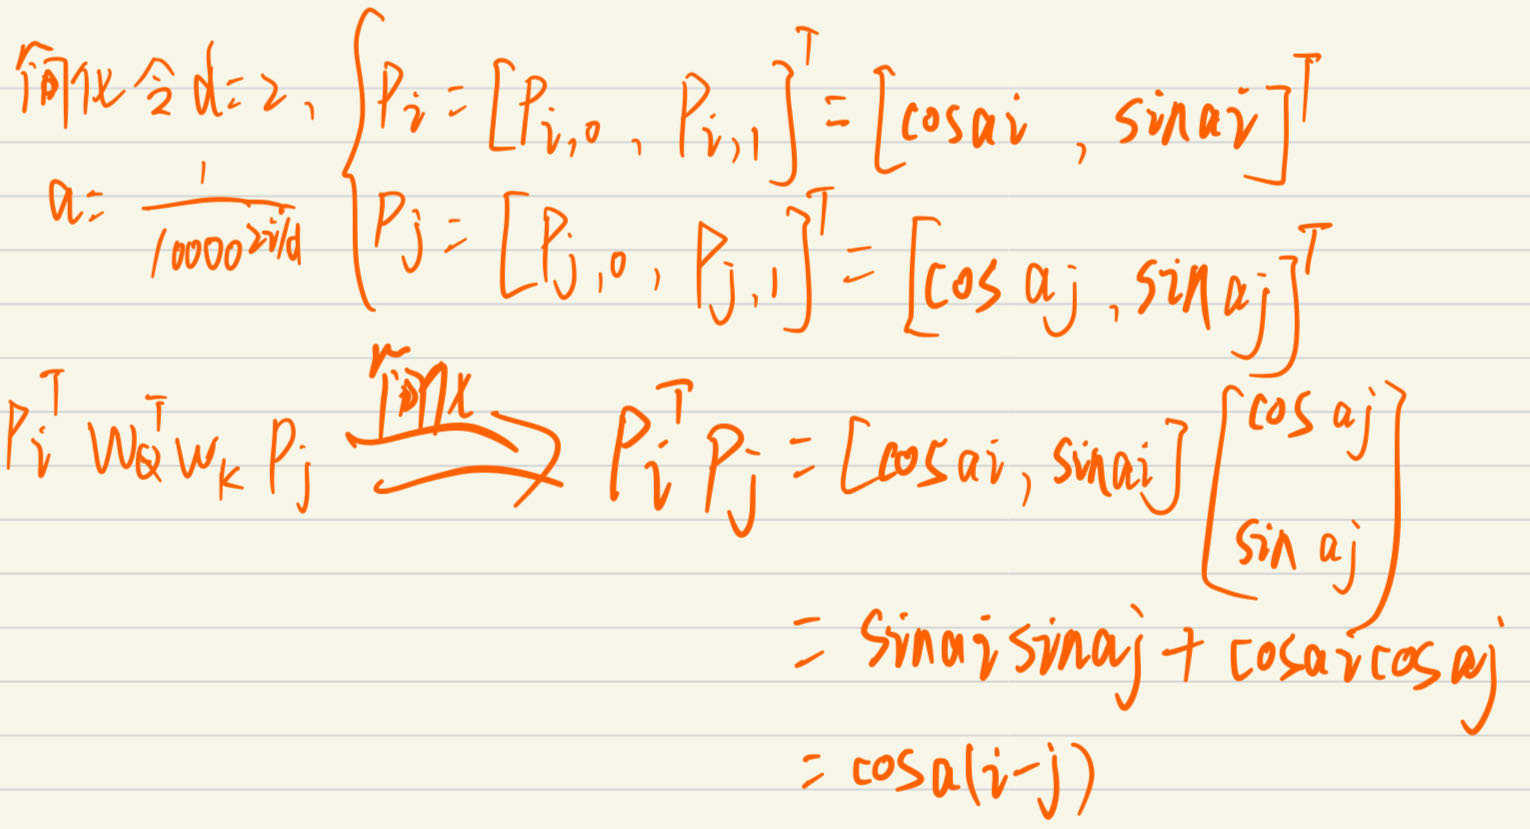 简化令d=2, P_i = [P_{i,0}, P_{i,1}]^T = [cosai, sinai]^T
a = 1/10000^{2i/d} P_j = [P_{j,0}, P_{j,1}]^T = [cosaj, sinaj]^T
P_i^T W_Q^T W_K P_j 简化 ⇒ P_i^T P_j = [cosai, sinai] [cosaj sinaj]
= sinaisinaj + cosaicosaj
= cosa(i-j)